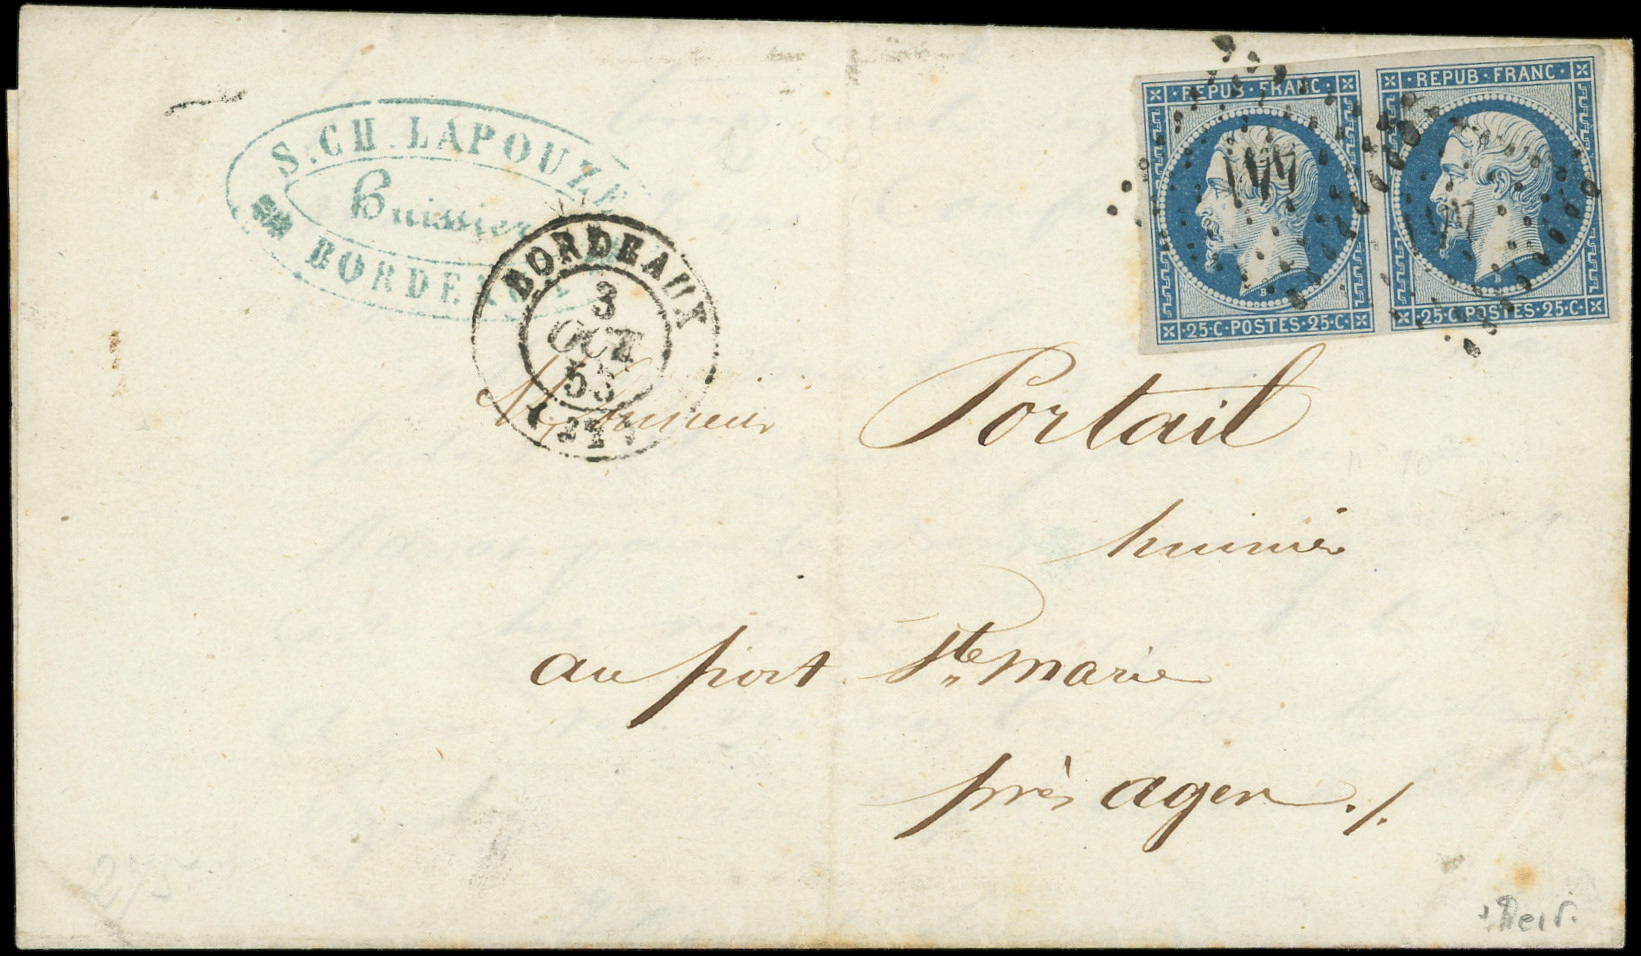 S. CH. LAPOUZE
Huissier
BORDEAUX
BORDEAUX
3
OCT
53
REPUB · FRANC ·
25 · C · POSTES · 25 · C ·
· REPUB · FRANC ·
· 25 · C · POSTES · 25 · C ·
Monsieur Portail
huissier
au port Ste marie
près agen ./.
275